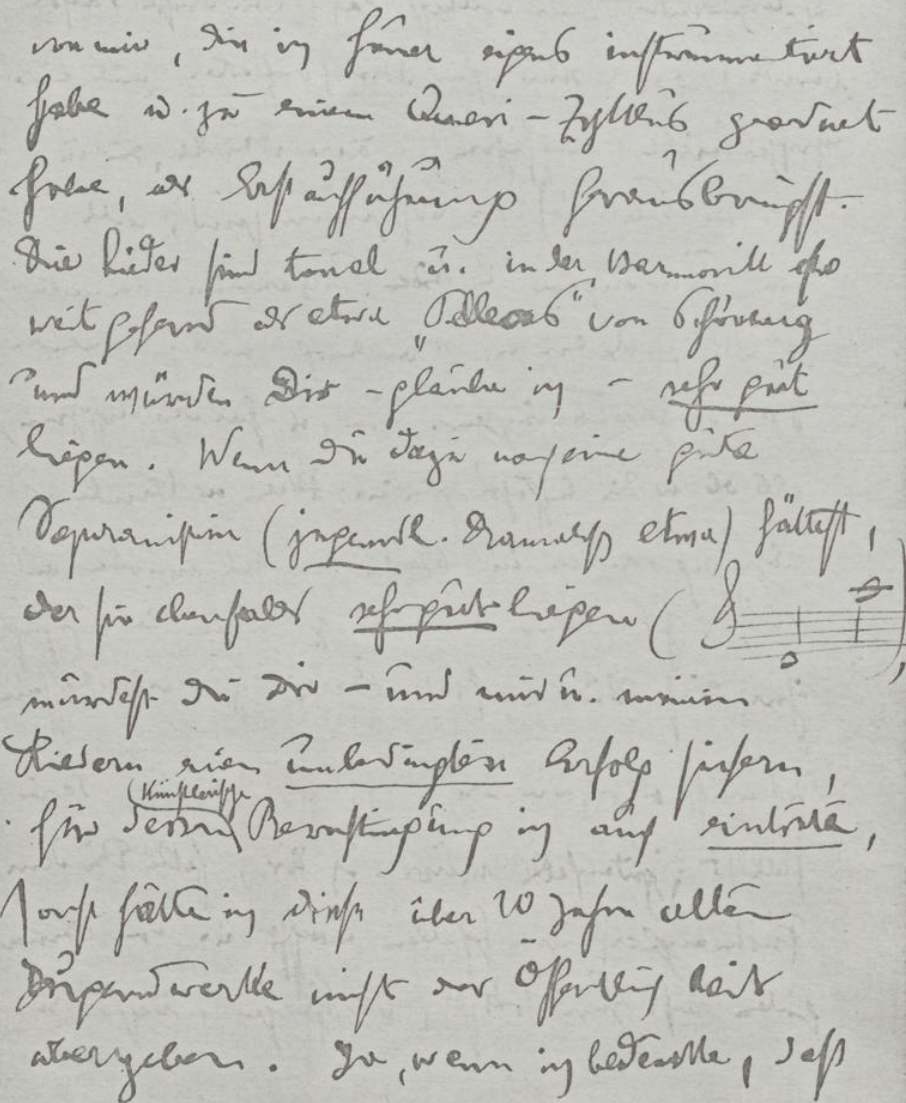 von mir, die ich heuer eigens instrumentiert
habe u. zu einem Zyklus geordnet
habe, als Erstaufführung herausbringst.
Die Lieder sind tonal u. in der Harmonik
weitgehend als etwa "Pelleas" von Schönberg
und würden Dir - glaube ich - sehr gut
liegen. Wenn Du dazu noch eine gute
Sopranistin (jugendl. dramatisch etwa) hättest,
der sie ebenfalls sehr gut liegen ( )
würdest Du Dir - und mir u. meinen
Liedern einen unbedingten Erfolg sichern,
für deren (künstlerische) Berechtigung ich auch einträte,
sonst hätte ich diese über 20 Jahre alten
Jugendwerke nicht der Öffentlichkeit
übergeben. Ja, wenn ich bedenke, daß